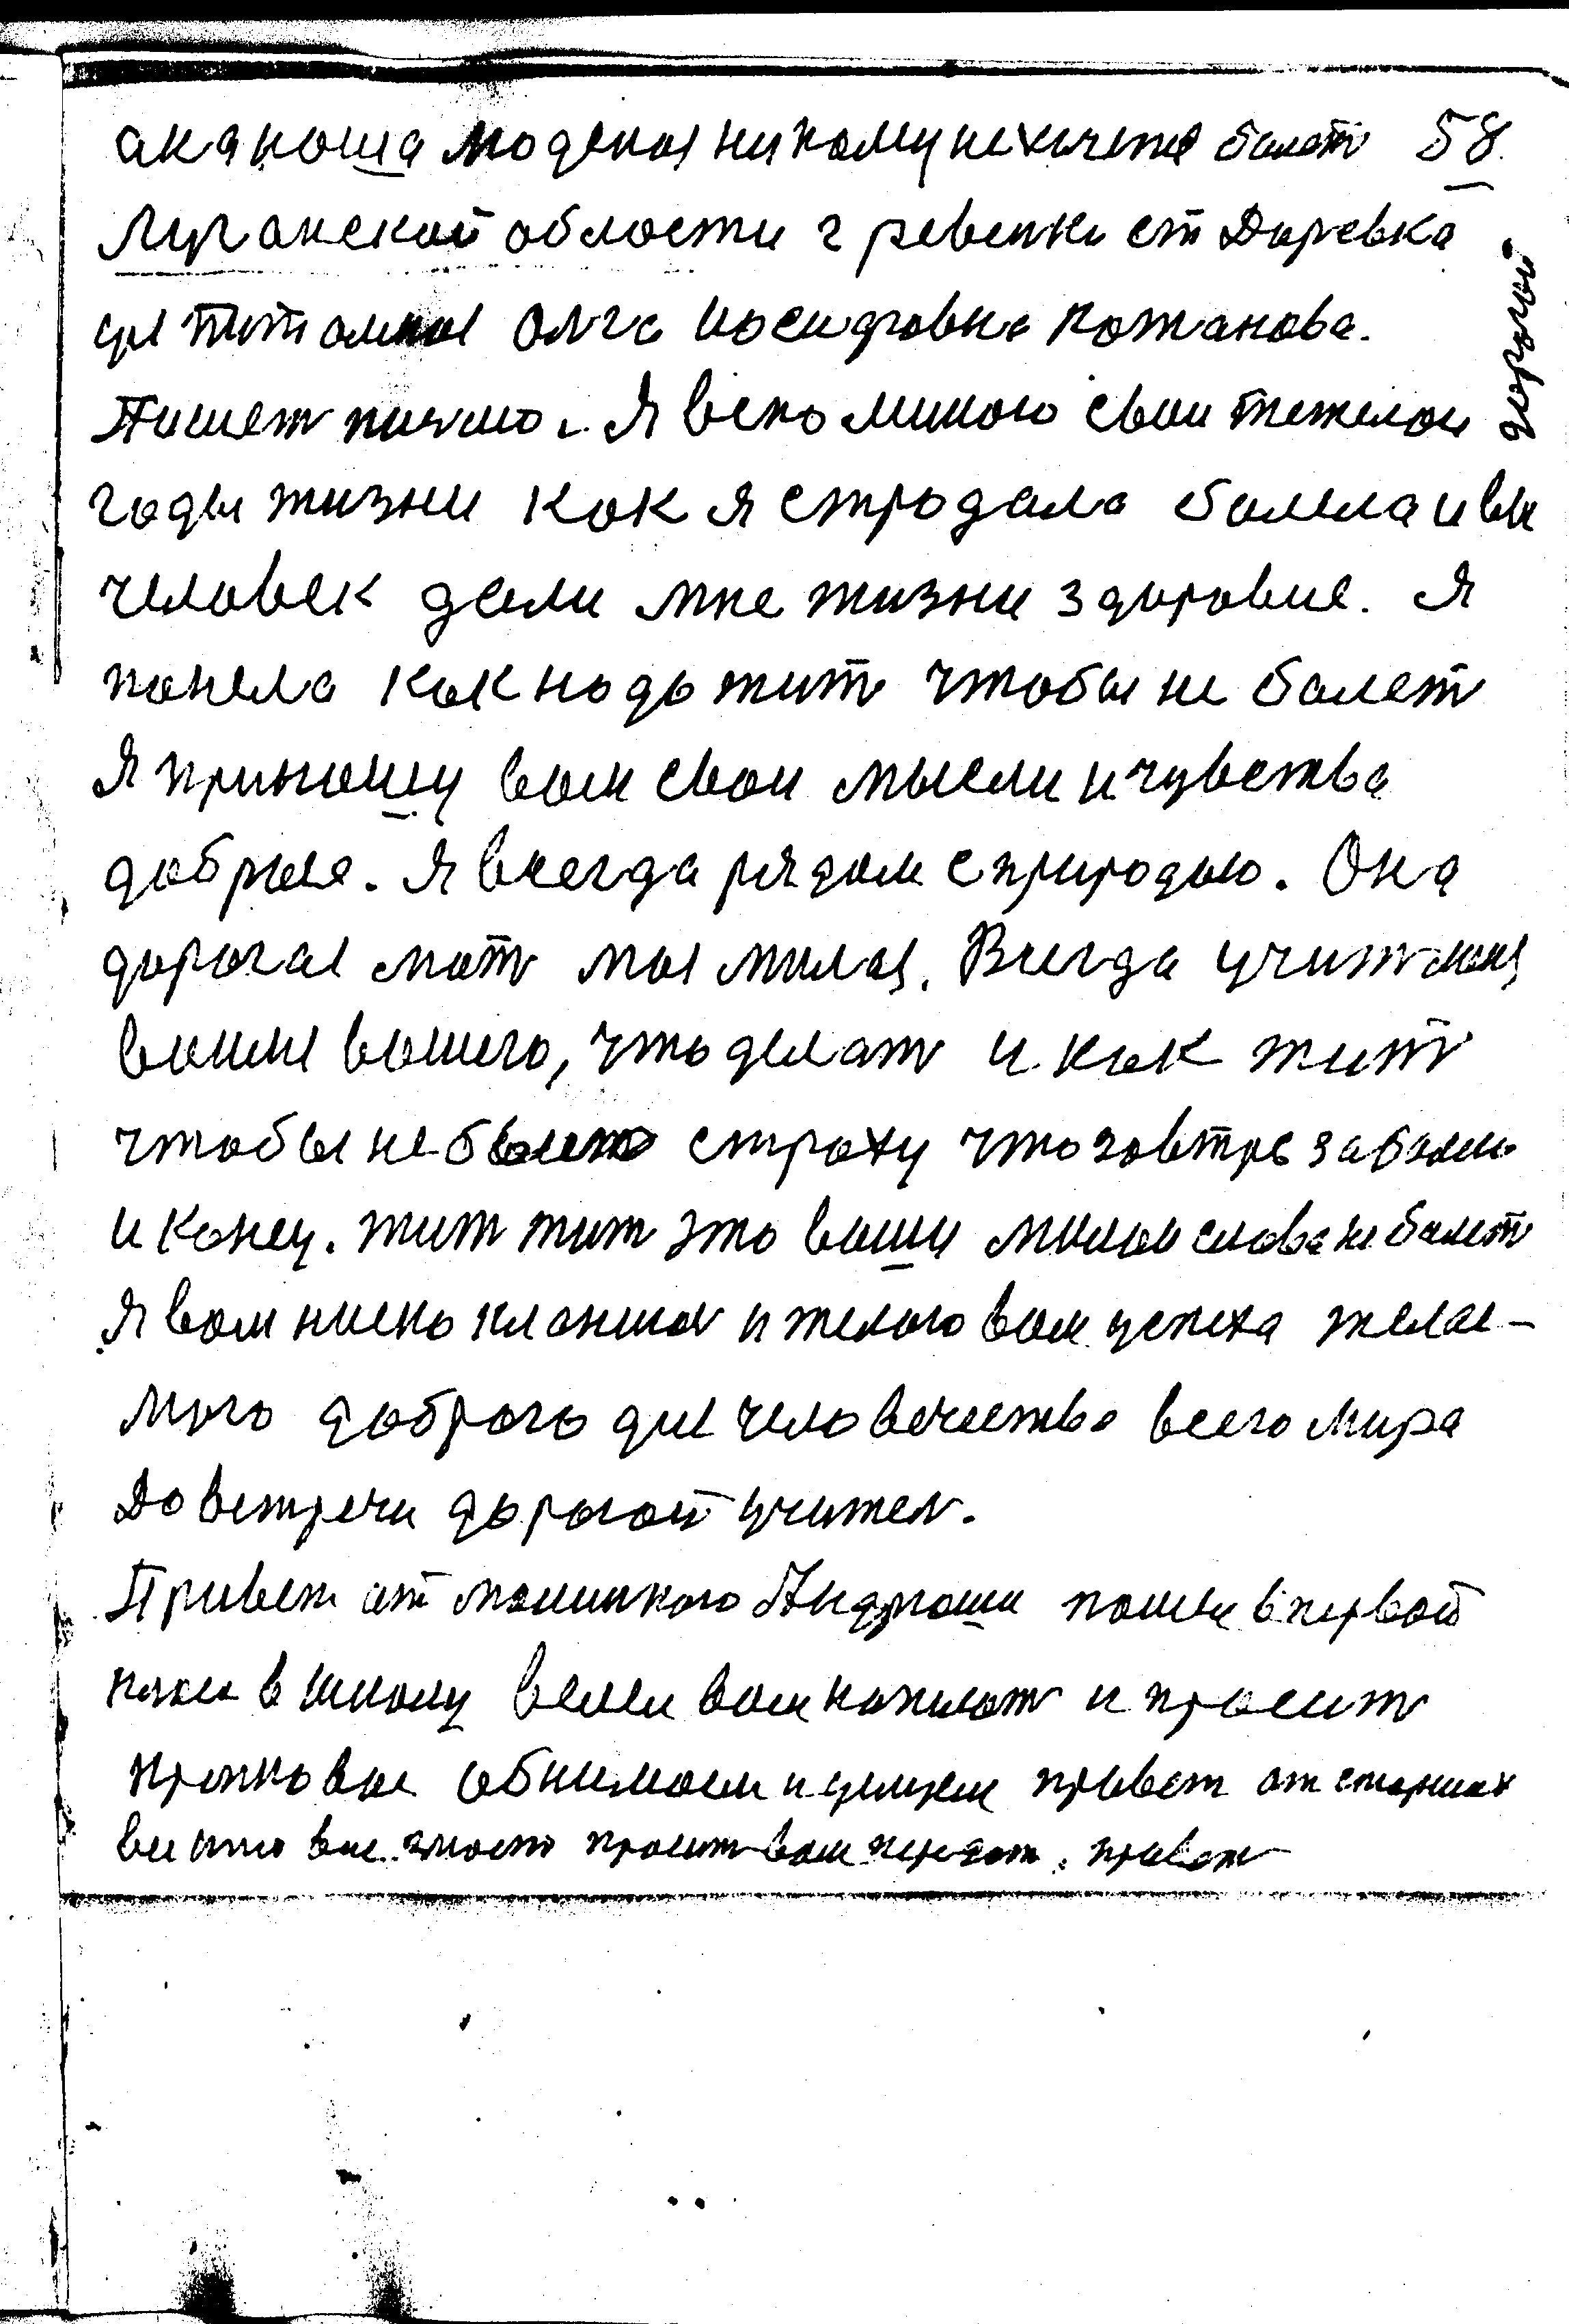 а как ноша моделая никому не хичетсе балет 58
Луганской области г ревеньки ст Даревка
Олга Иосифовна Кожанова.
Пишет письмо. Я вспоминою свои тежелои дорогой
годы жизни как я стродала балела и вы
человек дали мне жизни здаровие. Я
понела как нодо жит чтобы не балет
Я приношу вам свои мысли и чувства
добрыя. Я всегда рядом с природою. Она
дорогае мат моя милая. Всегда учит меня
выше вышего, что делат и как жит
чтобы не было строху что завтра заболею
и конец. жит жит это ваши милои слова не балет
Я вам ниско кланюсь и желаю вам успеха желае-
мого доброго для человечества всего мира
До встречи дорогой учител.
Привет от маминкого Андрюши пошел в первой
клас в школу велел вам написат и просит
крепко вас обнимаем и целуем привет от старших
все кто вас знает просит вам передат привет